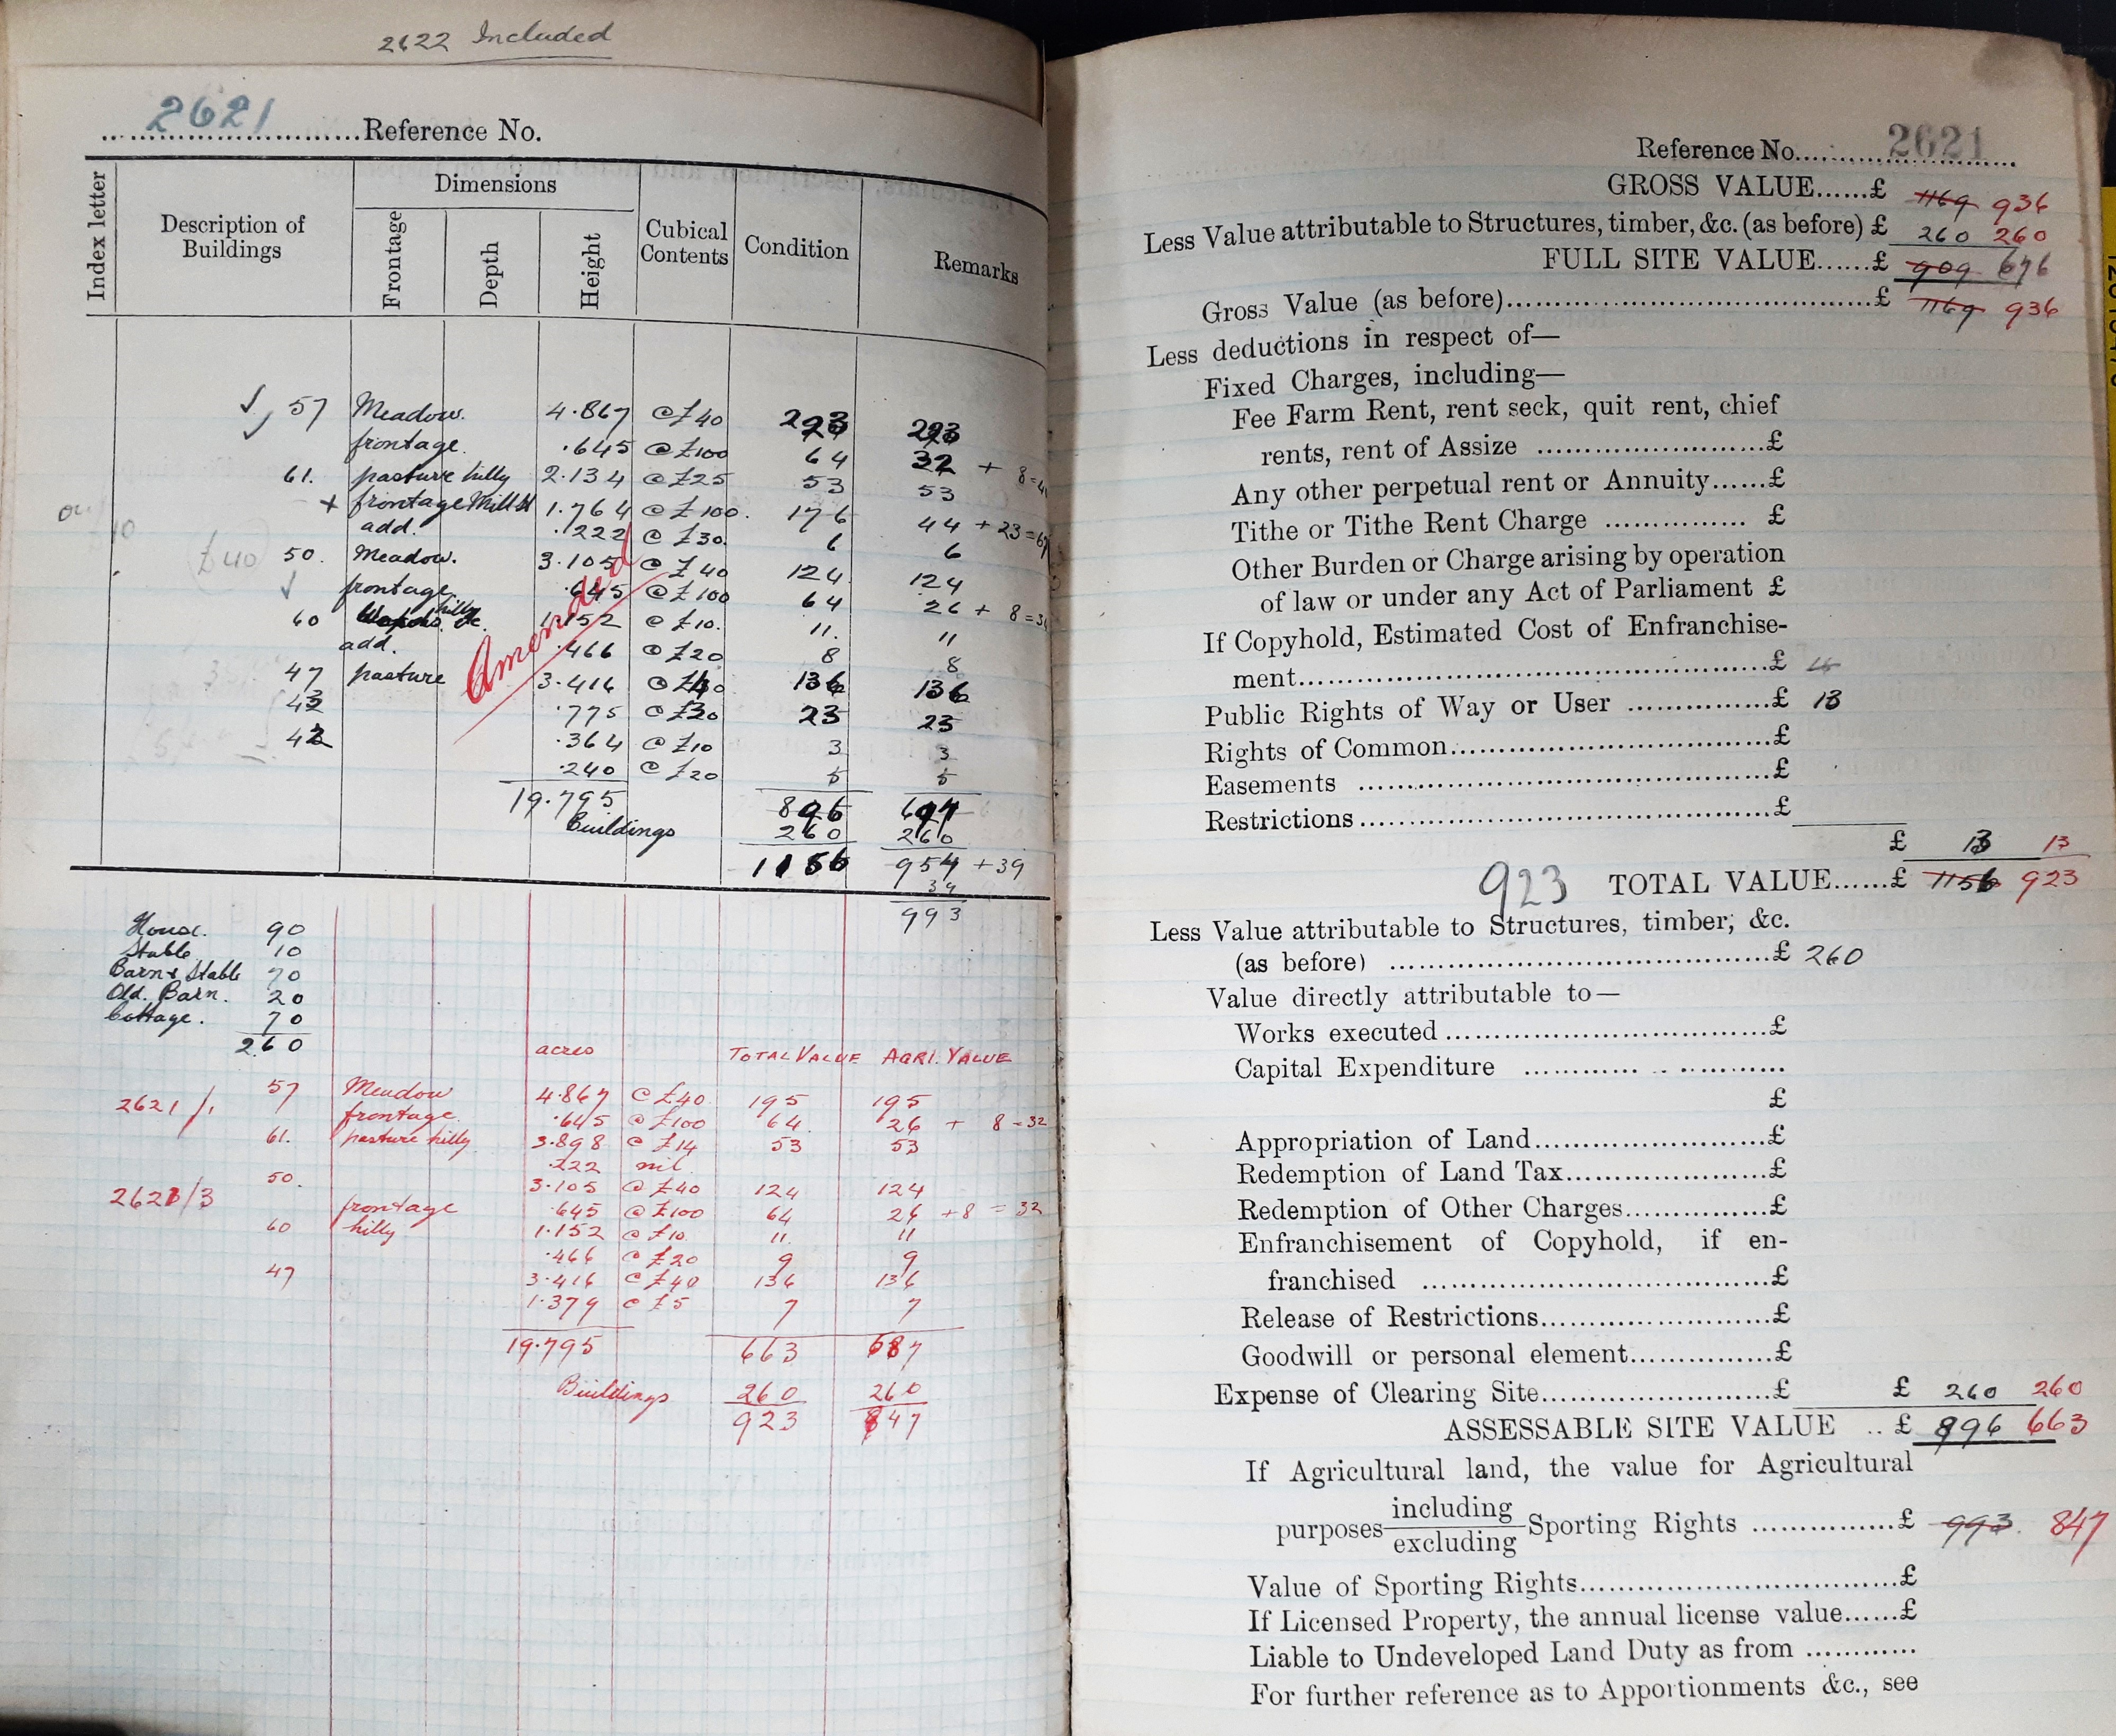 2622 Included
2621 Reference No.
Index letter
Description of Buildings
Dimensions
Frontage
Depth
Height
Cubical Contents
Condition
Remarks
57 Meadow. 4.867 @ £40 293 293
frontage. .645 @ £100 64 32 + 8 = 40
61. pasture hilly 2.134 @ £25 53 53
+ frontage Mill St 1.764 @ £100. 176 44 + 23 = 67
add. .222 @ £30. 6 6
£40 50. Meadow. 3.105 @ £40 124 124
frontage .645 @ £100 64 26 + 8 = 34
60 hilly 1.152 @ £10. 11. 11
add. .466 @ £20 8 8
47 pasture 3.416 @ £40 136 136
43 .775 @ £30 23 23
42 .364 @ £10 3 3
.240 @ £20 5 5
19.795 896 694
Buildings 260 260
1156 954 + 39
39
993
Amended
House. 90
Stable 10
Barn & Stable 70
Old. Barn. 20
Cottage. 70
260
acres TOTAL VALUE AGRI. VALUE
2621/1 57 Meadow 4.867 @ £40 195 195
frontage .645 @ £100 64 26 + 8 = 32
61. pasture hilly 3.898 @ £14 53 53
.222 nil.
2621/3 50. 3.105 @ £40 124 124
frontage .645 @ £100 64 24 + 8 = 32
60 hilly 1.152 @ £10 11. 11
.466 @ £20 9 9
47 3.416 @ £40 136 136
1.379 @ £5 7 7
19.795 663 587
Buildings 260 260
923 847
Reference No. 2621
GROSS VALUE......£ 1169 936
Less Value attributable to Structures, timber, &c. (as before) £ 260 260
FULL SITE VALUE......£ 909 676
Gross Value (as before)......£ 1169 936
Less deductions in respect of—
Fixed Charges, including—
Fee Farm Rent, rent seck, quit rent, chief
rents, rent of Assize ......£
Any other perpetual rent or Annuity......£
Tithe or Tithe Rent Charge ...... £
Other Burden or Charge arising by operation
of law or under any Act of Parliament £
If Copyhold, Estimated Cost of Enfranchise-
ment......£
Public Rights of Way or User ......£ 13
Rights of Common......£
Easements ......£
Restrictions......£
£ 13 13
923 TOTAL VALUE......£ 1156 923
Less Value attributable to Structures, timber, &c.
(as before) ......£ 260
Value directly attributable to—
Works executed......£
Capital Expenditure ......
£
Appropriation of Land......£
Redemption of Land Tax......£
Redemption of Other Charges......£
Enfranchisement of Copyhold, if en-
franchised ......£
Release of Restrictions......£
Goodwill or personal element......£
Expense of Clearing Site......£ £ 260 260
ASSESSABLE SITE VALUE .. £ 896 663
If Agricultural land, the value for Agricultural
purposes including
excluding Sporting Rights ......£ 993. 847
Value of Sporting Rights......£
If Licensed Property, the annual license value......£
Liable to Undeveloped Land Duty as from ......
For further reference as to Apportionments &c., see